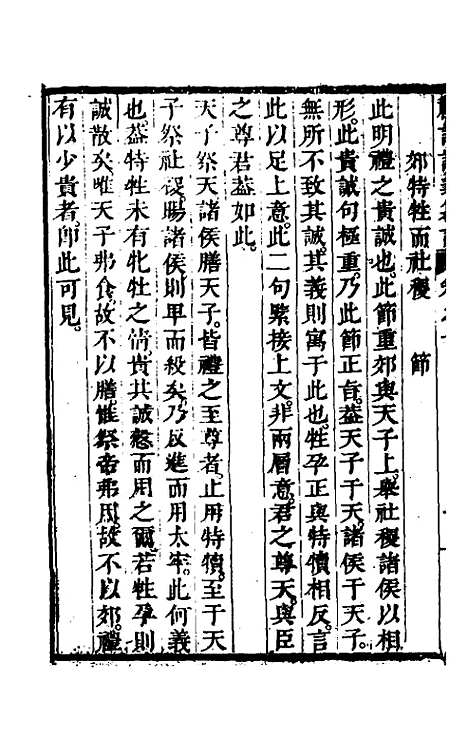 郊特牲而社稷　節
此明禮之貴誠也。此節重郊與天子上。舉社稷諸侯以相
形。此貴誠句極重。乃此節正旨。葢天子于天。諸侯于天子。
無所不致其誠。其義則寓于此也。牲孕正與特犢相反。言
此以足上意。此二句緊接上文。非兩層意。君之尊天。與臣
之尊君葢如此。
天子祭天諸侯膳天子。皆禮之至尊者。止用特犢。至于天
子祭社稷。賜諸侯。則卑而殺矣。乃反進而用太牢。此何義
也。葢特牲未有牝牡之情。貴其誠慤而用之爾。若牲孕則
誠散矣。唯天子弗食。故不以膳。惟祭帝弗用。故不以郊。禮
有以少貴者。卽此可見。